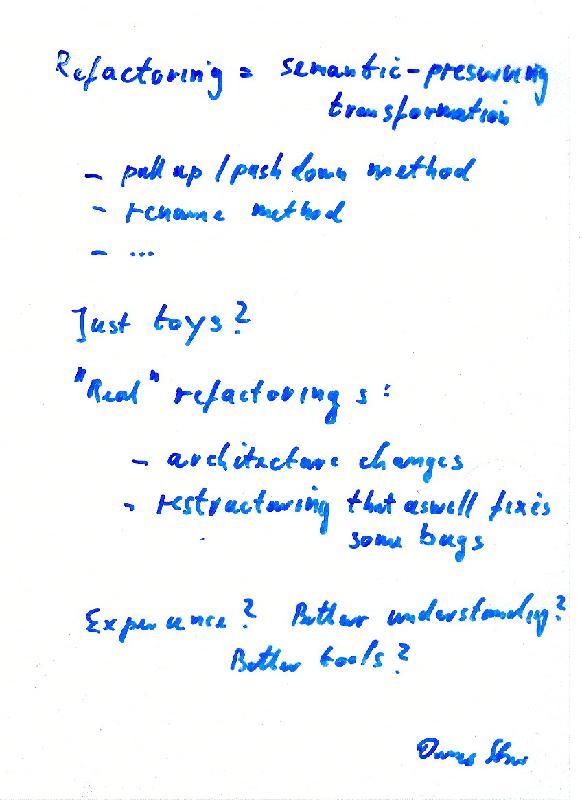 Refactoring = semantic-preserving
transformation
- pull up / push down method
- rename method
- ...
Just toys?
"Real" refactorings:
- architecture changes
- restructuring that aswell fixes
some bugs
Experience? Better understanding?
Better tools?